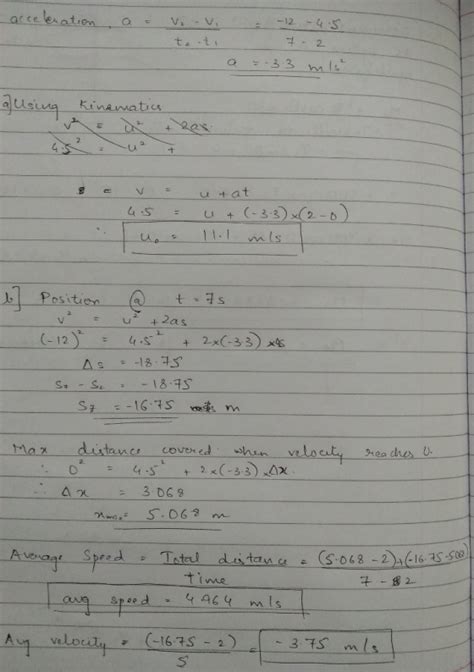 acceleration, a = V₂ - V₁ / t₂ - t₁ = -12 - 4.5 / 7 - 2
a = -3.3 m/s²
a] Using Kinematics
v² = u² + 2as
4.5² = u² +
v = u + at
4.5 = u + (-3.3) × (2-0)
∴ u₀ = 11.1 m/s
b] Position @ t = 7s
v² = u² + 2as
(-12)² = 4.5² + 2×(-3.3) ×s
Δs = -18.75
S₇ - S₂ = -18.75
S₇ = -16.75 m
Max distance covered when velocity reaches 0.
∴ 0² = 4.5² + 2×(-3.3)×Δx.
∴ Δx = 3.068
= 5.068 m
Average Speed = Total distance / time = (5.068 - 2)+(-16.75- / 7 - 2
avg speed = 4.964 m/s
Avg velocity = (-16.75 - 2) / 5 = -3.75 m/s